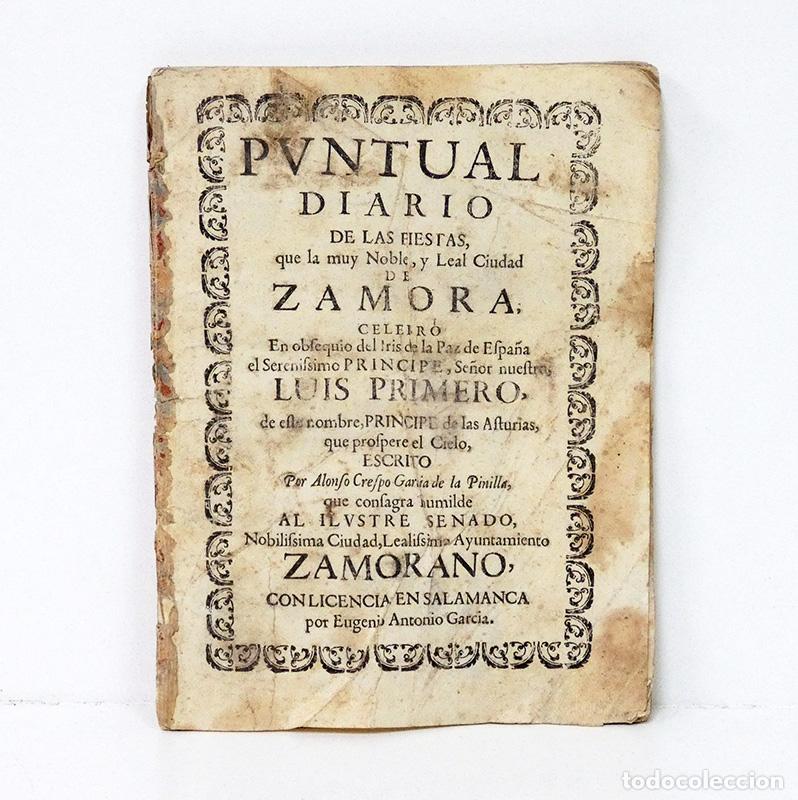 PVNTUAL
DIARIO
DE LAS FIESTAS,
que la muy Noble, y Leal Ciudad
DE
ZAMORA,
CELEBRÒ
En obsequio del Iris de la Paz de España
el Sereniſsimo PRINCIPE, Señor nuestro,
LUIS PRIMERO,
de este nombre, PRINCIPE de las Asturias,
que prospere el Cielo,
ESCRITO
Por Alonſo Creſpo Garcia de la Pinilla,
que conſagra humilde
AL ILVSTRE SENADO,
Nobiliſsima Ciudad, Lealiſsimo Ayuntamiento
ZAMORANO,
CON LICENCIA EN SALAMANCA
por Eugenio Antonio Garcia.
todocoleccion